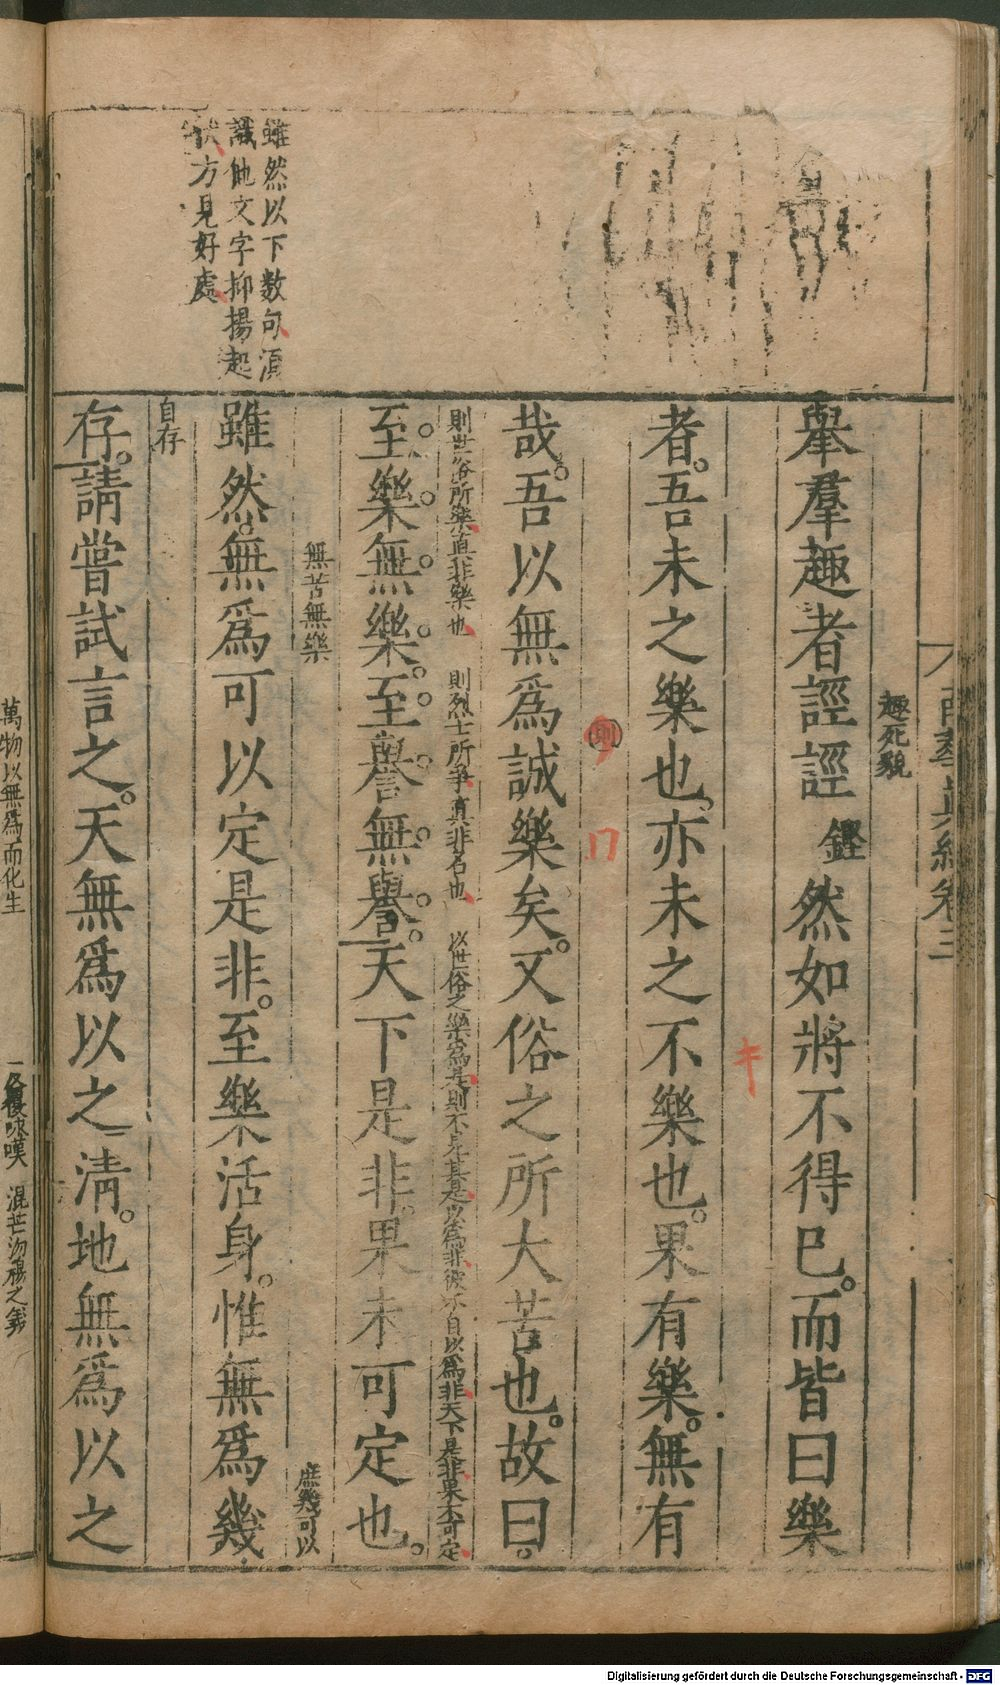 南華真經卷三
趣死貌
舉羣趣者誙誙 鏗 然如將不得已。而皆曰樂
者。吾未之樂也。亦未之不樂也。果有樂。無有
哉。吾以無爲誠樂矣。又俗之所大苦也。故曰。
則世俗所樂真非樂也 則烈士所爭真非名也 以世俗之樂爲是則不見其是以爲非彼亦自以爲非天下是非果不可定
至樂無樂。至譽無譽。天下是非。果未可定也。
無苦無樂 庶幾可以
雖然。無爲可以定是非。至樂活身。惟無爲幾
自存
存。請嘗試言之。天無爲以之清。地無爲以之
雖然以下数句須
識他文字抑揚起
伏方見好處
萬物以無爲而化生
反覆咏嘆 混芒汤穆之義
Digitalisierung gefördert durch die Deutsche Forschungsgemeinschaft - DFG